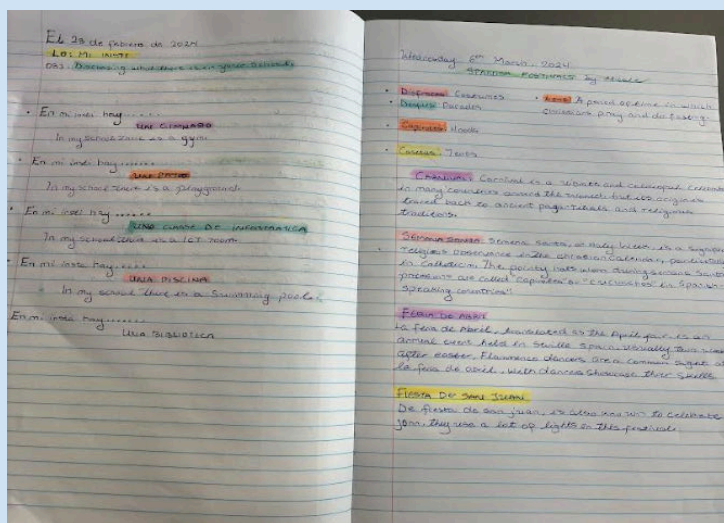 El 28 de febrero de 2024
LO: Mi insti
OBJ: Discussing what there is in your school.
• En mi insti hay......
UNE GIMNASIO
In my school there is a gym.
• En mi insti hay......
UNA PATIO
In my school there is a playground.
• En mi insti hay......
UNO CLASSE DE INFORMATICA
In my school there is a ICT room.
• En mi insti hay......
UNA PISCINA
In my school there is a swimming pool.
En mi insti hay......
UNA BIBLIOTICA
Wednesday 6th March, 2024
SPANISH FESTIVALS by
• Disfraces: Costumes
• Lent: A period of time in which
• Desfiles: Parades
christians pray and do fasting.
• Capirotes: Hoods
• Casetas: Tents
CARNIVAL: Carnival is a vibrant and colourful
in many countries around the world. origins
traced back to ancient pagan rituals and religious
traditions.
SEMANA SANTA: Semana Santa, or Holy Week, is a
religious observance in the christian calendar,
in Catholicism. The pointy hats worn during semana santa
are called "capirotes" or in Spanish-
speaking countries".
FERIA DE ABRIL
La feria de Abril, translated as the April fair is an
annual event held in Seville Spain usually two
after easter, Flamenco dancers are a common sight at
la feria de abril, with dancers showcase their skills
FIESTA DE SAN JUAN
De fiesta de san juan, is also known to celebrate
john, they use a lot of lights in this festival.